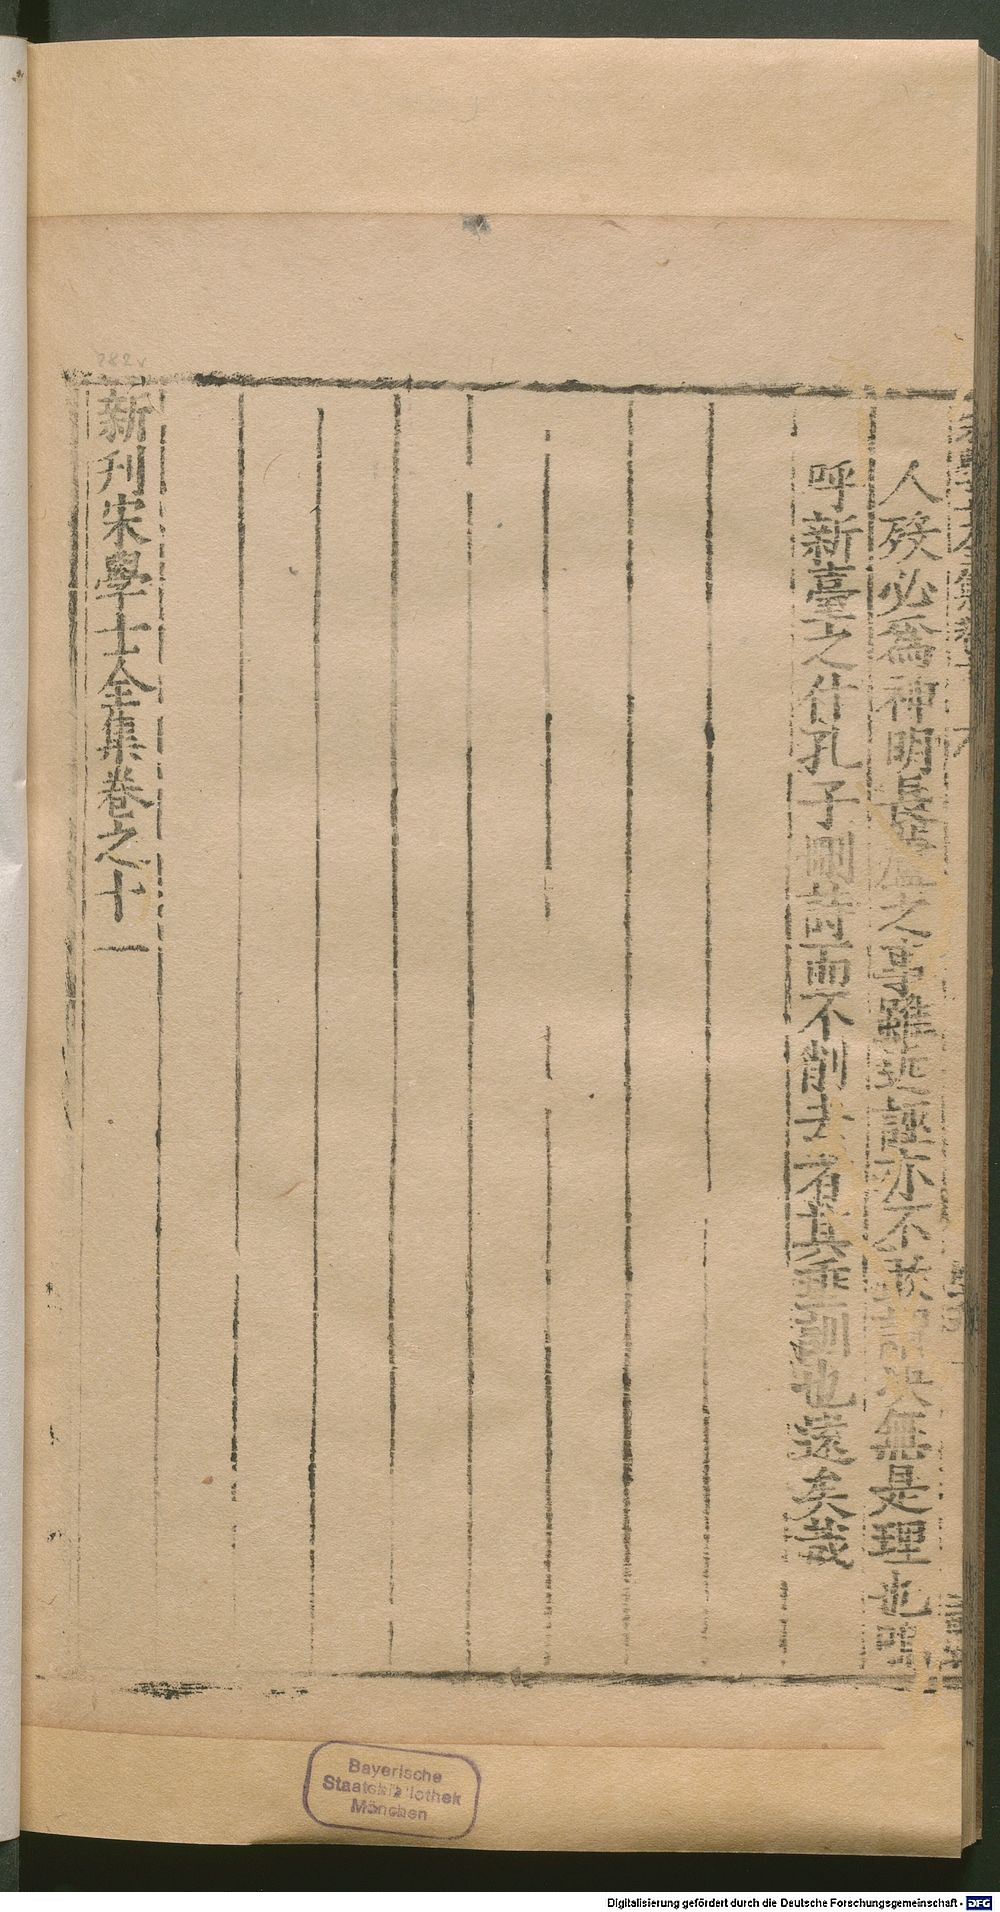 人歿必為神明長短之事雖近誣亦不敢謂決無是理也嗚
呼新臺之什孔子刪詩而不削去者其垂訓也遠矣哉
新刊宋學士全集卷之十一
282v
Bayerische
Staatsbibliothek
München
Digitalisierung gefördert durch die Deutsche Forschungsgemeinschaft - DFG